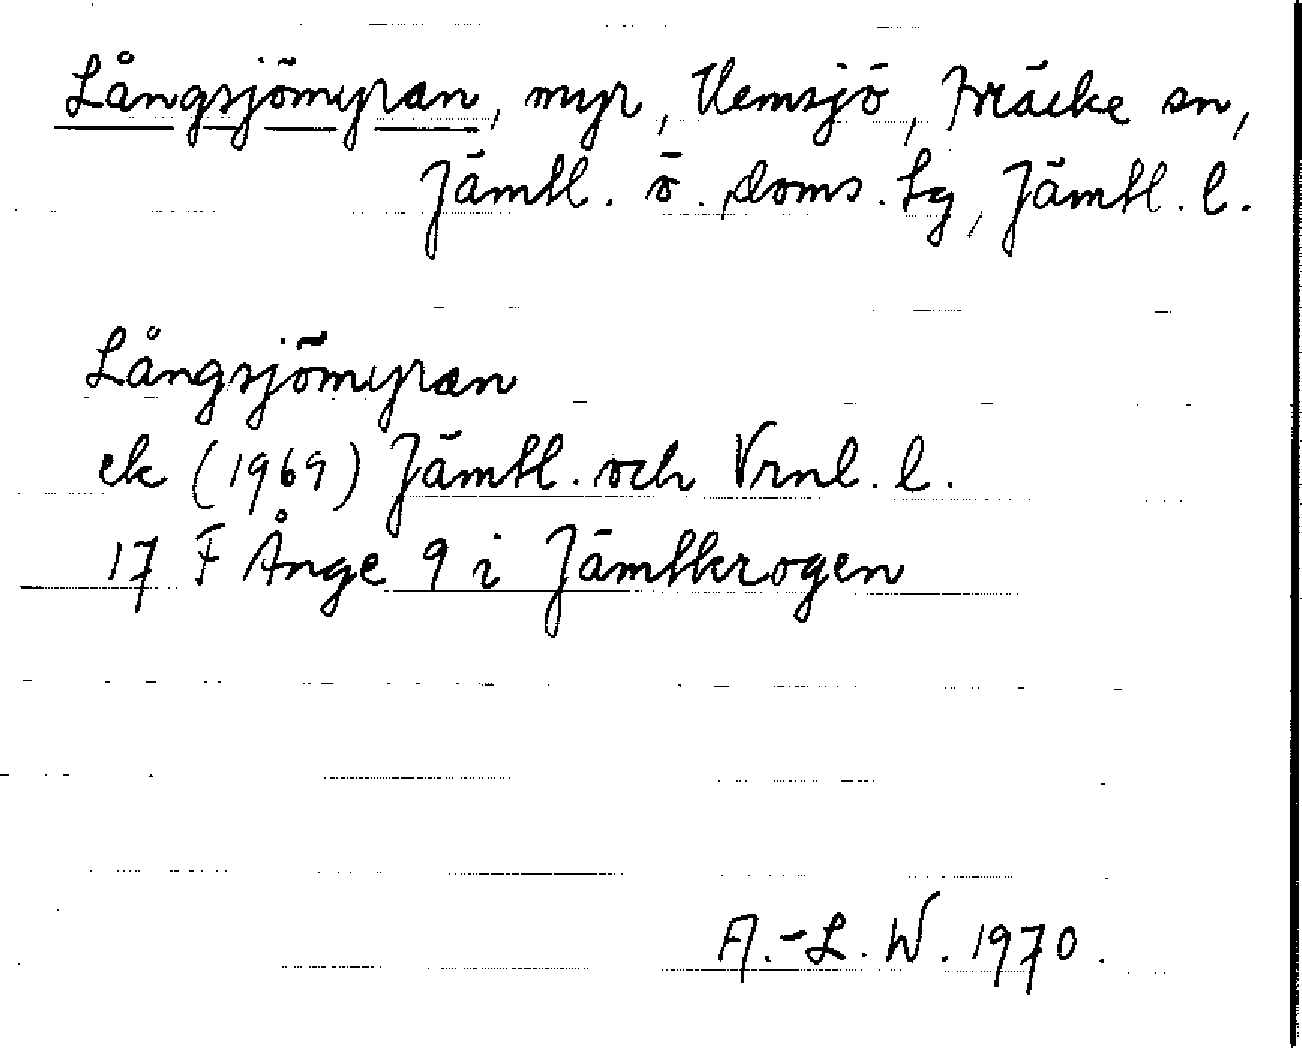 Långsjömyran, myr, Vemsjö, Bräcke sn,
Jämtl. ö. doms. tg, Jämtl. l.
Långsjömyran
ek (1969) Jämtl. och Vrnl. l.
17 F Ånge 9 i Jämtkrogen
A.-L. W. 1970.